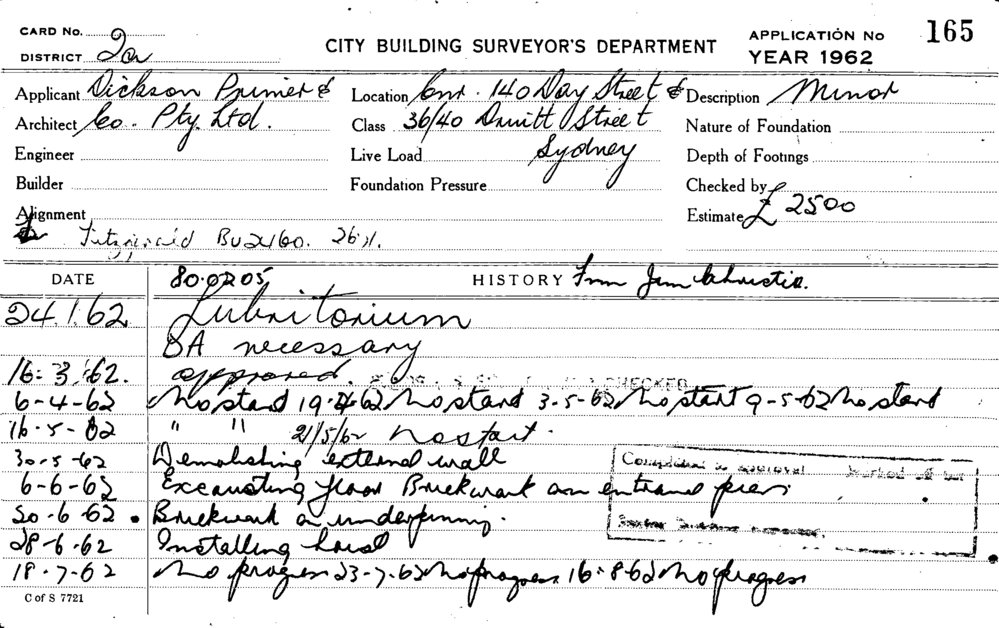 CARD No.
DISTRICT 2a
CITY BUILDING SURVEYOR'S DEPARTMENT
APPLICATION No 165
YEAR 1962
Applicant Dickson Primer &
Architect Co. Pty. Ltd.
Engineer
Builder
Alignment
Location Cnr. 140 Day Street &
Class 36/40 Druitt Street
Live Load Sydney
Foundation Pressure
Description Minor
Nature of Foundation
Depth of Footings
Checked by
Estimate £ 2500
Fitzgerald BU2160.
DATE 80.0205 HISTORY From Jim Christie.
24.1.62 Lubritorium
BA necessary
16.3.62. approved. CHECKED
6-4-62 No start 19.4.62 No start 3-5-62 No start 9-5-62 No start
16-5-62 " " 21/5/62 No start.
30-5-62 Demolishing external wall
6-6-62 Excavating floor Brickwork on entrance piers
20-6-62 Brickwork on underpinning.
28-6-62 Installing hoist
18-7-62 No progress 23-7-62 No progress 16-8-62 No progress
Completed to approval Marked off
C of S 7721